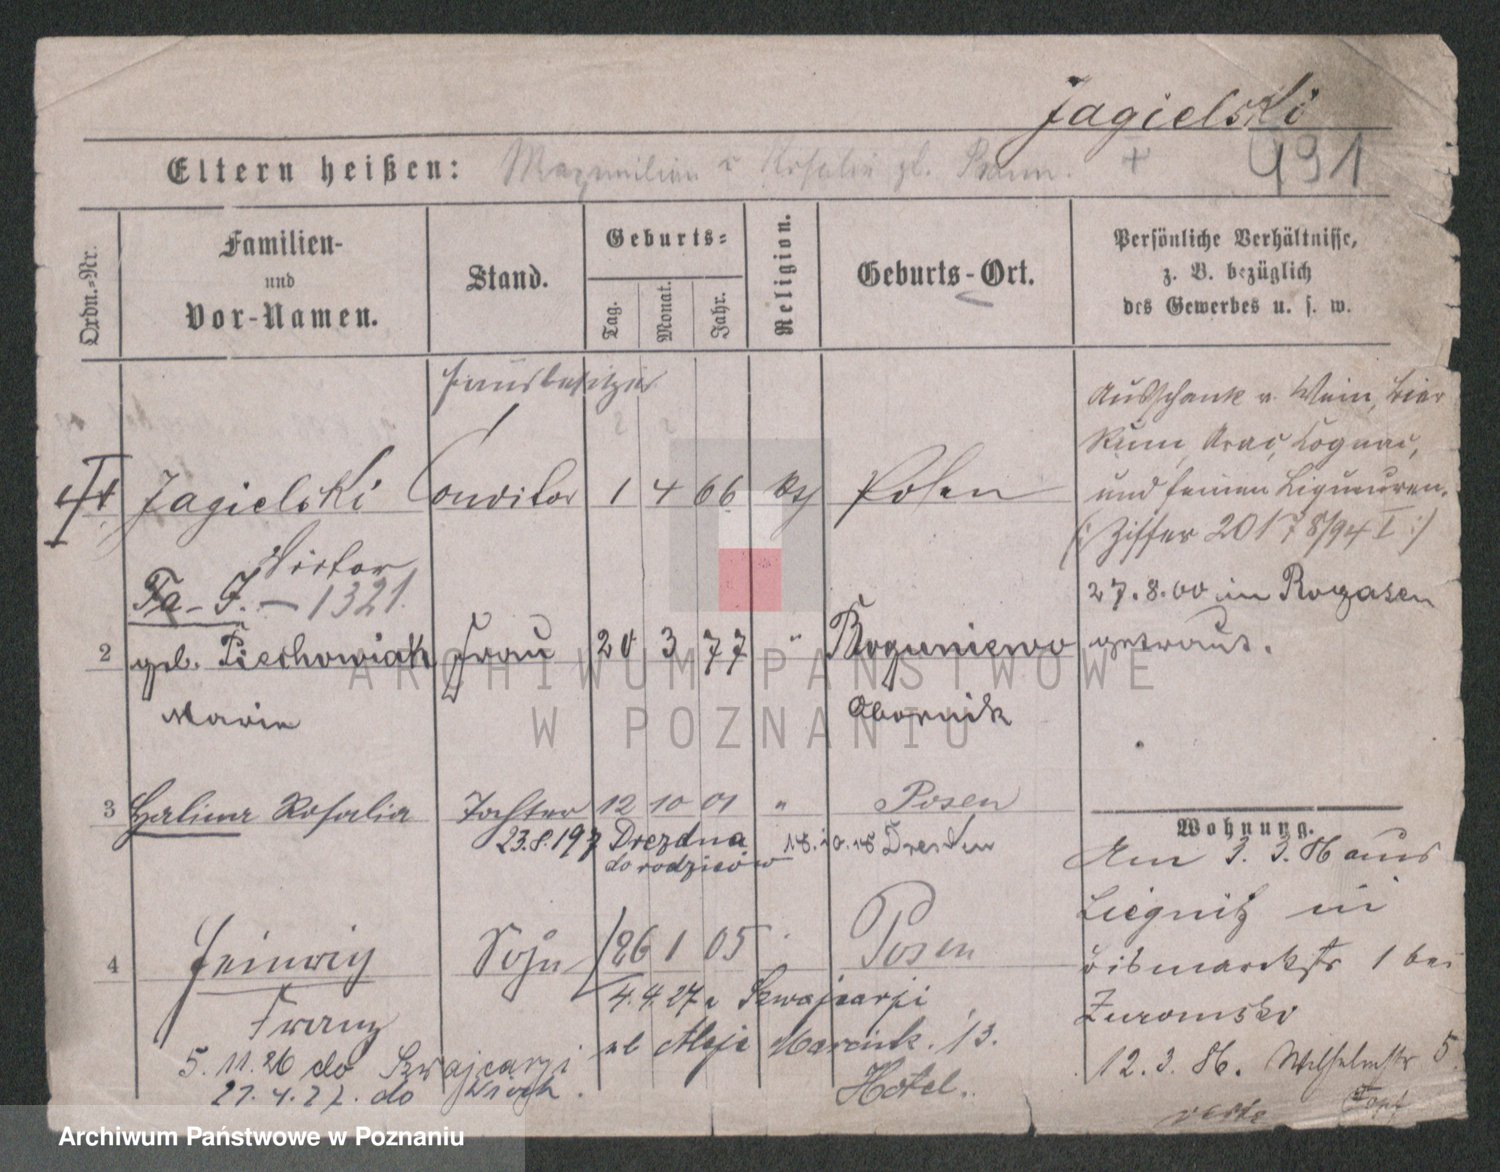 Jagielski
Eltern heißen: Maximilian u Rosalie +
991
Ordn.-Nr.
Familien-
und
Vor-Namen.
Stand.
Geburts-
Tag.
Monat.
Jahr.
Religion.
Geburts-Ort.
Persönliche Verhältnisse,
z. B. bezüglich
des Gewerbes u. s. w.
Hausbesitzer
Jagielski Conditor 1 4 66 kth Posen
Victor
Fa- J. - 1321.
Ausschank v. Wein, Bier
Rum, Arac, Cognac,
und feinen Liqueuren.
(: Ziffer 20178/94 I :)
27.8.00 in Rogasen
getraut.
2 geb. Piechowiak Frau 20 3 77 " Boguniewo
Marie Obornik
3 Halina Rosalia Tochter 12 10 01 " Posen
23.8.197 Drezdna 18.10.18 Dresden
do rodziców
4 Heinrich Sohn 26 1 05 Posen
Franz
4.4.27 z Szwajcarji
ul Aleje Marcink. 13.
Hotel.
5.11.26 do Szwajcarji
27.4.27. do Włoch.
Wohnung.
Am 3.3.86 aus
Liegnitz in
Bismarckstr 1 bei
Zuromski
12.3.86. Wilhelmstr 5
verte
ARCHIWUM PAŃSTWOWE
W POZNANIU
Archiwum Państwowe w Poznaniu